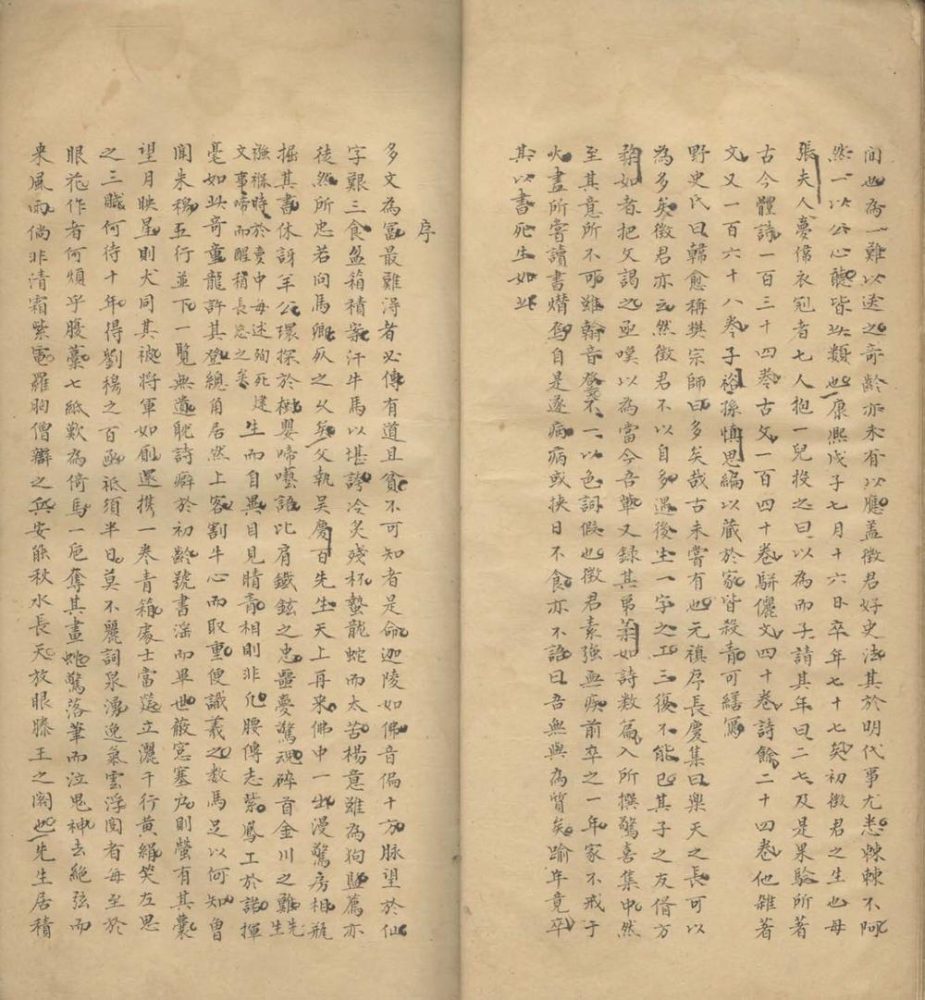 間也為一難以送之奇齡亦未有以應蓋徵君好史法其於明代事尤悉棘棘不阿
然一以公心聽皆此類也康熙戊子七月十六日卒年七十七矣初徵君之生也母
張夫人夢偉衣冠者七人抱一兒投之曰以為而子請其年曰二七及是果驗所著
古今體詩一百三十四卷古文一百四十卷駢儷文四十卷詩餘二十四卷他雜著
文又一百六十八卷子裕孫慎思編以藏於家皆殺青可繕寫
野史氏曰韓愈稱樊宗師曰多矣哉古未嘗有也元稹序長慶集曰樂天之長可以
為多矣徵君亦云然徵君不以自多遇後生一字之工三復不能已其子之友借方
如者把父謁之亟嘆以為當今吾輩又錄其弟如詩數篇入所撰驚喜集中然
至其意所不可雖翰音登天不一以色詞假也徵君素強無疾前卒之一年家不戒于
火盡所嘗讀書燔焉自是遂病病或挾日不食亦不語曰吾無與為質矣踰年竟卒
其以書死生如此
序
多文為富最難得者必傳有道且貧不可知者是命迦陵如佛音偏十方脉望於仙
字艱三食盆箱積案汗牛馬以堪誇冷炙殘杯蟄龍蛇而太苦楊意雖為狗監薦亦
徒然所忠若問馬卿疾之久矣父執吳慶百先生天上再來佛中一出漫驚房相瓶
掘其書休訝羊公環探於樹嬰啼囈語比肩鐵鉉之忠噩夢驚魂碎首金川之難先生
襁褓時於夢中每述殉死建文事啼而醒稍長忘之矣生而自異目見睛青相則非凡腰傳志紫鳳工於諾揮
毫如此奇童龍許其登總角居然上客割牛心而取重便識羲之數馬足以何知曾
聞朱穆五行並下一覽無遺耽詩癖於初齡號書淫而畢世蔽窓塞戶則螢有其囊
望月映星則犬同其被將軍如廁還携一卷青箱處士當筵立灑千行黄絹笑左思
之三賦何待十年得劉楊之百函祇須半日莫不麗詞泉湧逸氣雲浮閱者每至於
眼花作者何煩乎腹藁七紙歎為倚馬一卮奪其畫蛇驚落筆而泣鬼神去絶弦而
來風雨倘非清霜紫電羅胸僧辯之兵安能秋水長天放眼滕王之閣也先生居積